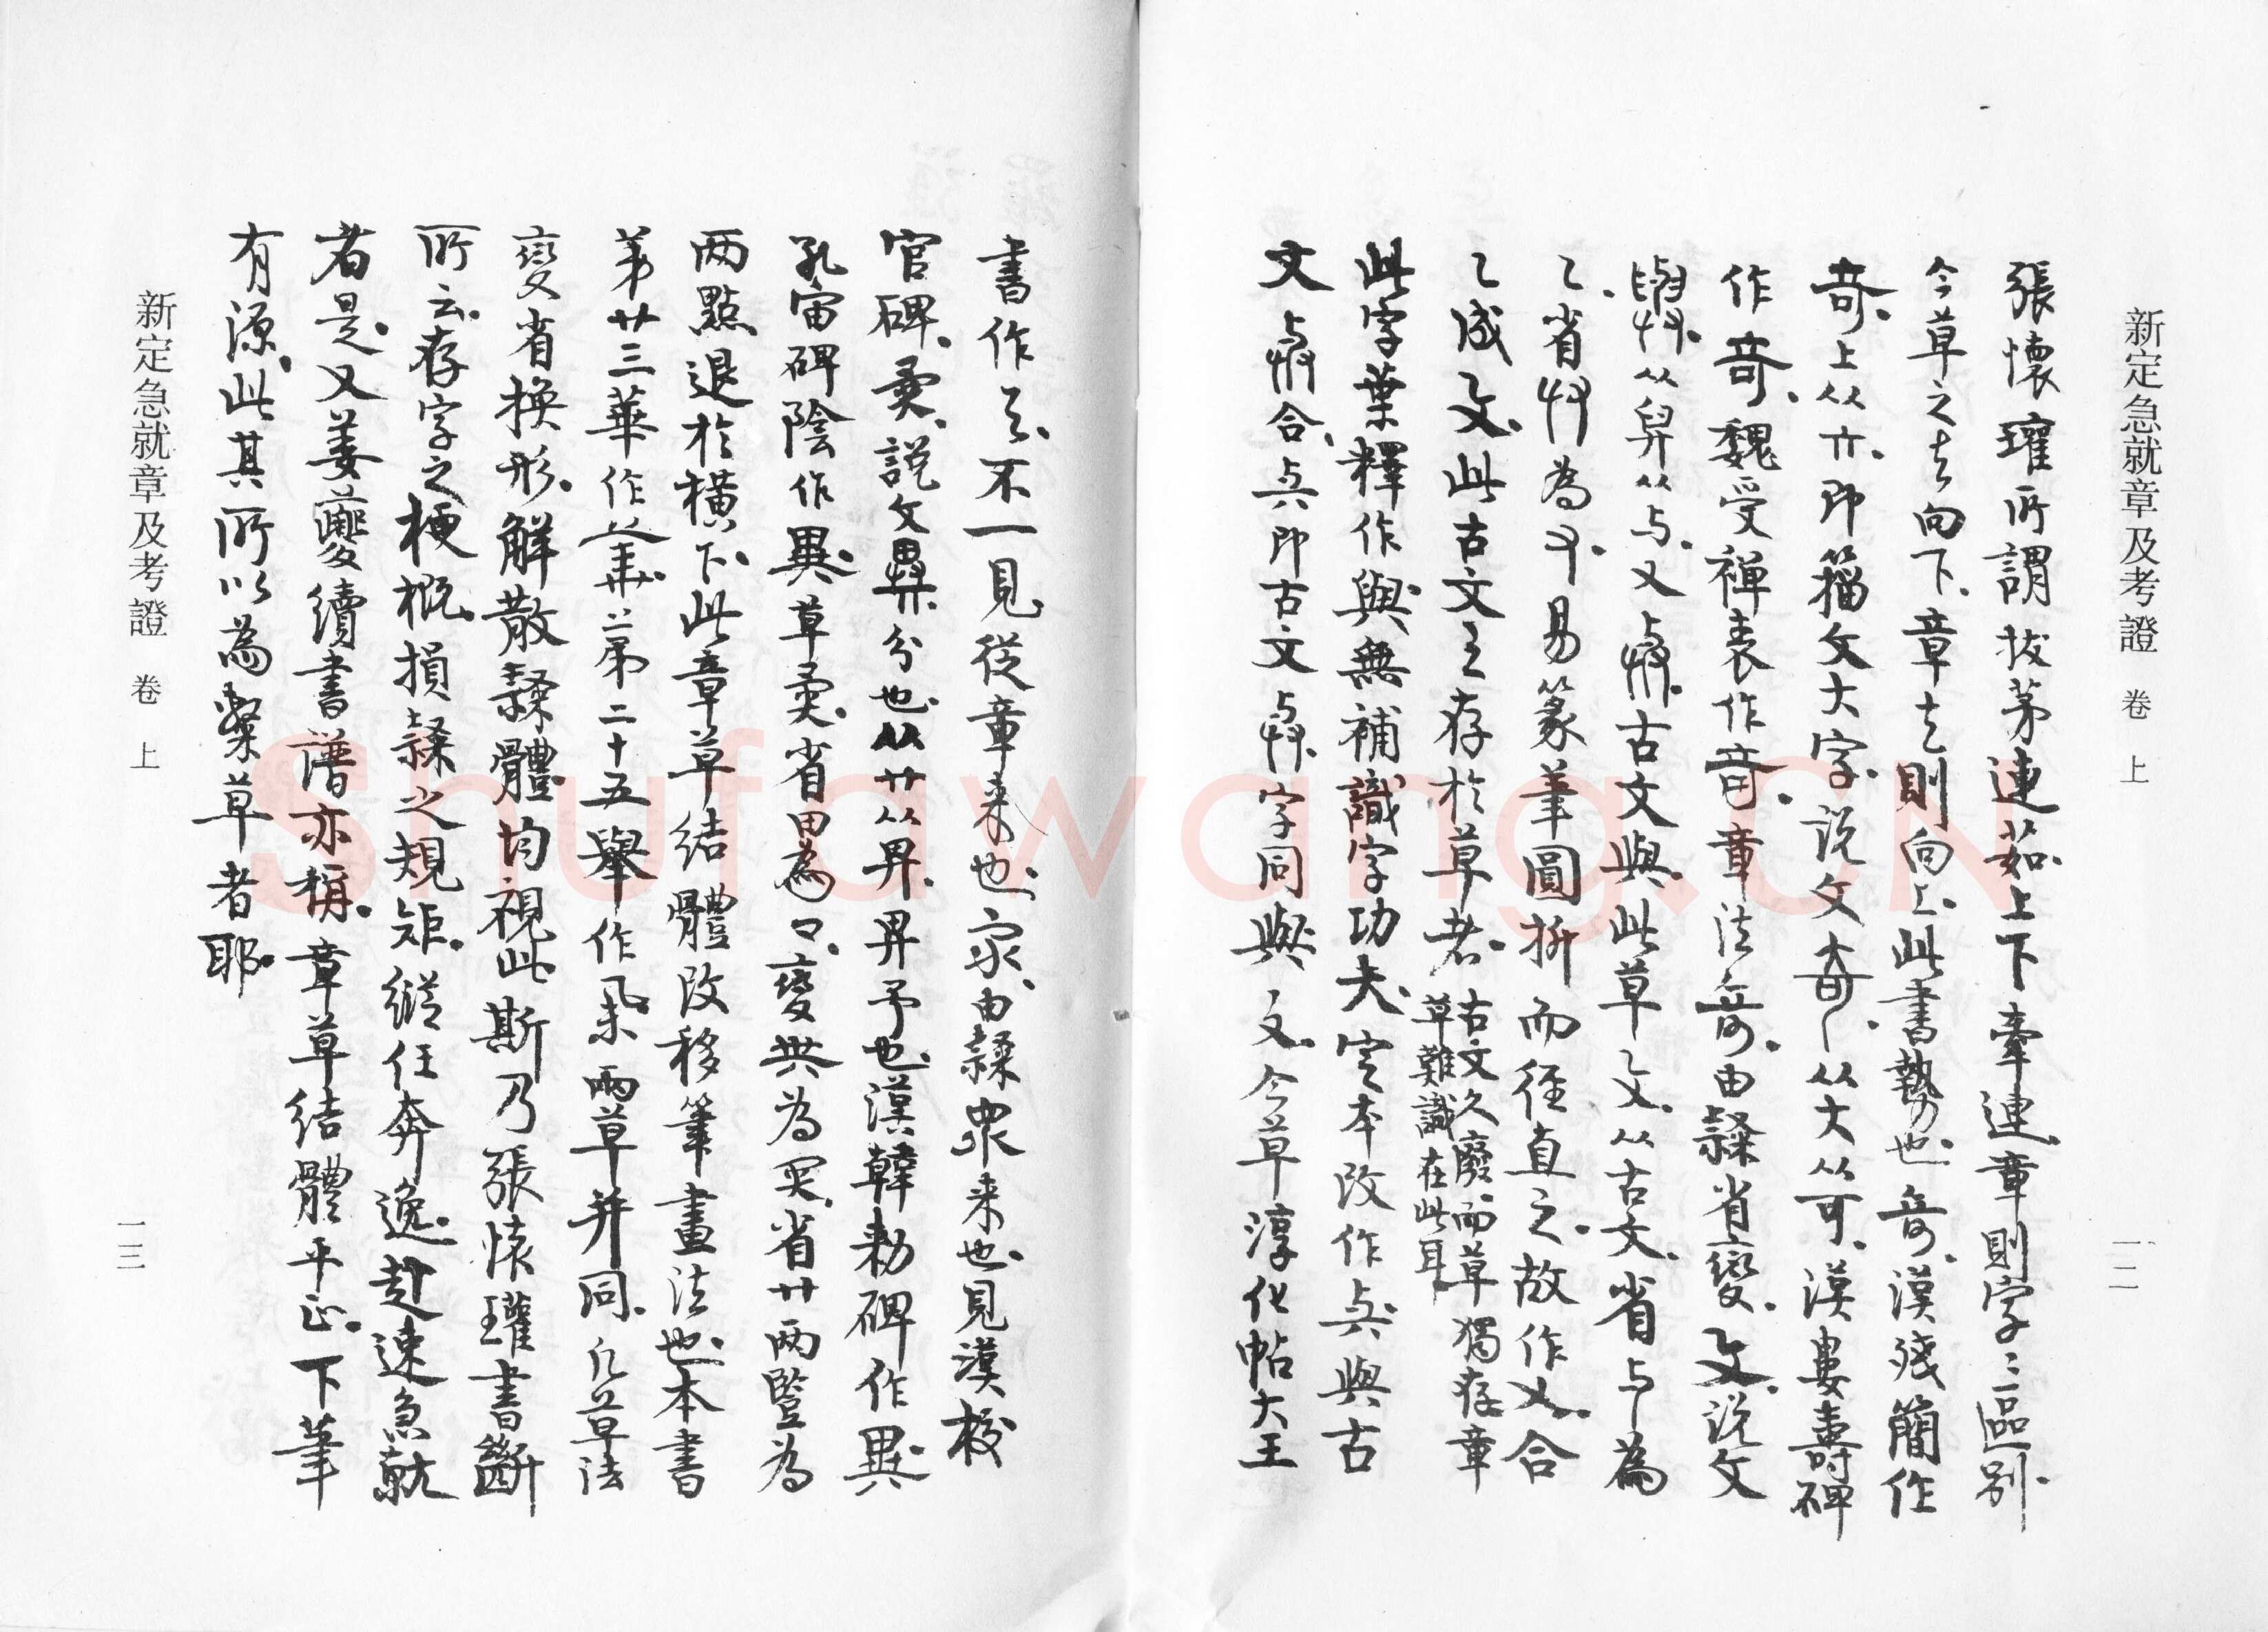 新定急就章及考證 卷上 一二
張懷瓘所謂拔茅連茹上下牽連章則字〻區別
今草之去向下章去則向上此書勢也奇漢殘簡作
奇上从亣即籀文大字說文奇从大从可漢婁壽碑
作奇魏受禪表作奇章法奇由隸省變說文
从舁从与又古文與此草从古文省与為
省為易篆筆圓折而徑直之故作合
成此古文之存於草者古文久廢而草獨存章草難識在此耳
此字葉釋作與無補識字功夫定本改作与與古
文合与即古文字同與今草淳化帖大王
書作不一見從章來也眾由隸眾來也見漢校
官碑異說文異分也从廾从畀畀予也漢韓勑碑作異
孔宙碑陰作異草異省田為口變共為省廾兩豎為
两點退於橫下此章草結體改移筆畫法也本書
第廿三華作第二十五舉作兩草并同凡草法
變省換形解散隸體均視此斯乃張懷瓘書斷
所云存字之梗概損隸之規矩縱任奔逸赴速急就
者是又姜夔續書譜亦稱章草結體平正下筆
有源此其所以為槀草者耶
新定急就章及考證 卷上 一三
Shufawang.CN